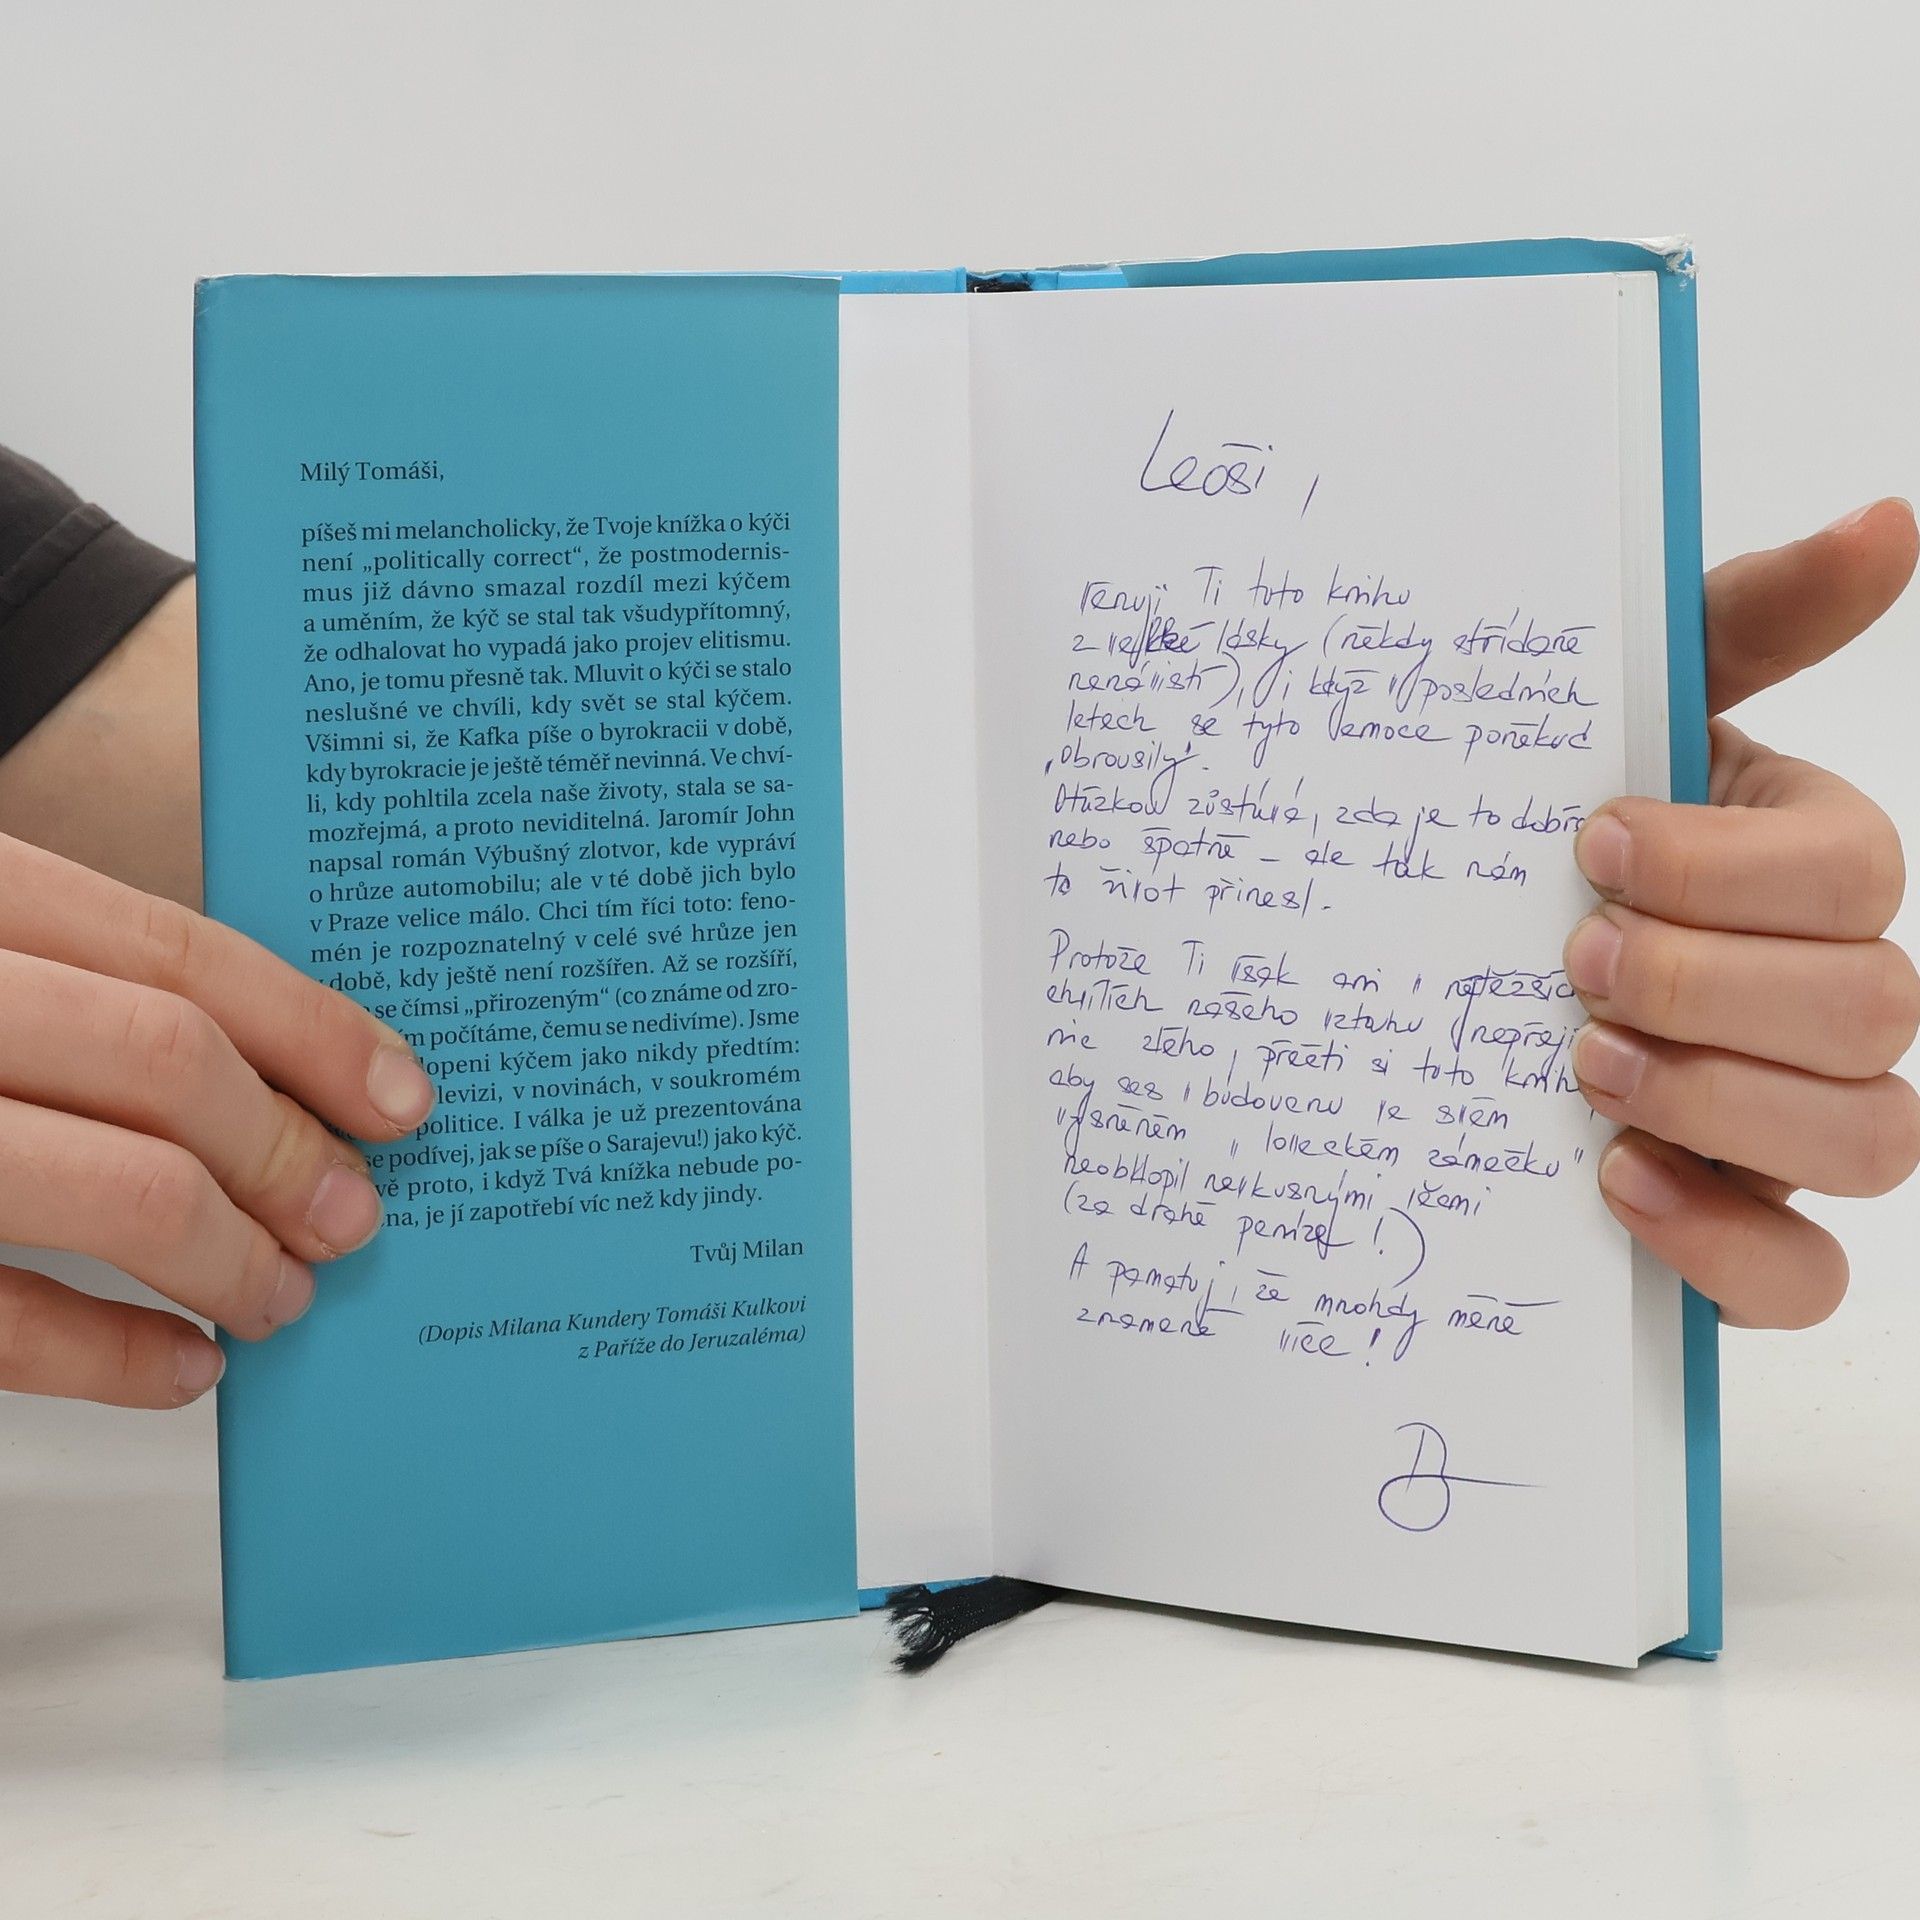 Milý Tomáši,
píšeš mi melancholicky, že Tvoje knížka o kýči
není „politically correct“, že postmodernis-
mus již dávno smazal rozdíl mezi kýčem
a uměním, že kýč se stal tak všudypřítomný,
že odhalovat ho vypadá jako projev elitismu.
Ano, je tomu přesně tak. Mluvit o kýči se stalo
neslušné ve chvíli, kdy svět se stal kýčem.
Všimni si, že Kafka píše o byrokracii v době,
kdy byrokracie je ještě téměř nevinná. Ve chví-
li, kdy pohltila zcela naše životy, stala se sa-
mozřejmá, a proto neviditelná. Jaromír John
napsal román Výbušný zlotvor, kde vypráví
o hrůze automobilu; ale v té době jich bylo
v Praze velice málo. Chci tím říci toto: feno-
mén je rozpoznatelný v celé své hrůze jen
době, kdy ještě není rozšířen. Až se rozšíří,
se čímsi „přirozeným“ (co známe od zro-
m počítáme, čemu se nedivíme). Jsme
lopeni kýčem jako nikdy předtím:
levizi, v novinách, v soukromém
politice. I válka je už prezentována
se podívej, jak se píše o Sarajevu!) jako kýč.
vě proto, i když Tvá knížka nebude po-
na, je jí zapotřebí víc než kdy jindy.
Tvůj Milan
(Dopis Milana Kundery Tomáši Kulkovi
z Paříže do Jeruzaléma)
Leoši,
Věnuji Ti tuto knihu
z velké lásky (někdy střídané
nenávistí), i když v posledních
letech se tyto emoce poněkud
„obrousily“.
Otázkou zůstává, zda je to dobře
nebo špatné – ale tak nám
to život přinesl.
Protože Ti však ani v nejtěžších
chvílích našeho vztahu nepřeji
nic zlého, přečti si tuto knih
aby ses v budování ve svém
vysněném "loveckém zámečku"
neobklopil nevkusnými věcmi
(za drahé peníze!)
A pamatuj, že mnohdy méně
znamená více!